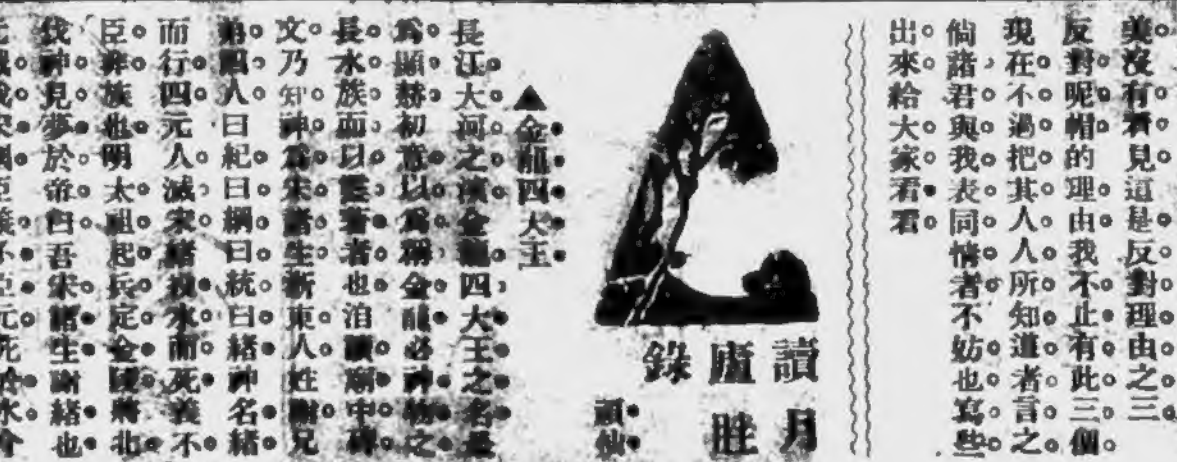 美沒有看見這是反對理由之三
反對呢帽的理由我不止有此三個
現在不過把其人人所知道者言之
倘諸君與我表同情者不妨也寫些
出來給大家看看
讀月
廬胜
錄
頑仙
▲金龍四大王
長江大河之濱金龍四大王之名最
爲顯赫初意以爲稱金龍必神物之
長水族而以靈著者也洎讀廟中碑
文乃知神爲宋諸生浙東人姓謝兄
弟四人曰紀曰綱曰統曰緒神名緒
而行四元人滅宋緒投水而死義不
臣非族也明太祖起兵定金陵將北
伐神見夢於帝曰吾宋諸生謝緒也